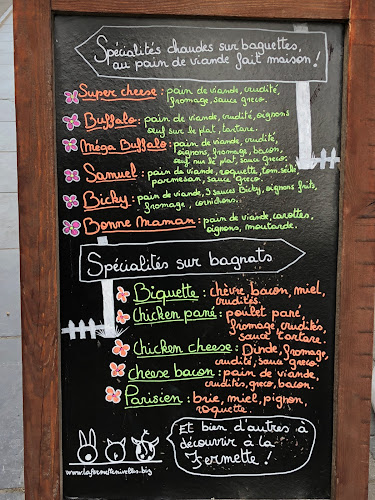 Spécialités chaudes sur baguettes,
au pain de viande fait maison !
Super cheese : pain de viande, crudité,
fromage, sauce greco.
Buffalo : pain de viande, crudité, oignons
œuf sur le plat, tartare.
Méga Buffalo : pain de viande, crudité,
oignons, fromage, bacon,
œuf sur le plat, sauce greco.
Samuel : pain de viande, roquette, tom. séchée,
parmesan, sauce greco.
Bicky : pain de viande, 3 sauces Bicky, oignons frits,
fromage, cornichons.
Bonne Maman : pain de viande, carottes,
oignons, moutarde.
Spécialités sur bagnats
Biquette : chèvre, bacon, miel,
crudités.
Chicken pané : poulet pané,
fromage, crudités,
sauce tartare.
Chicken cheese : Dinde, fromage,
crudité, sauce greco.
Cheese bacon : pain de viande,
crudités, greco, bacon.
Parisien : brie, miel, pignon,
roquette.
Et bien d'autres à
découvrir à la
Fermette !
www.lafermettenivelles.biz